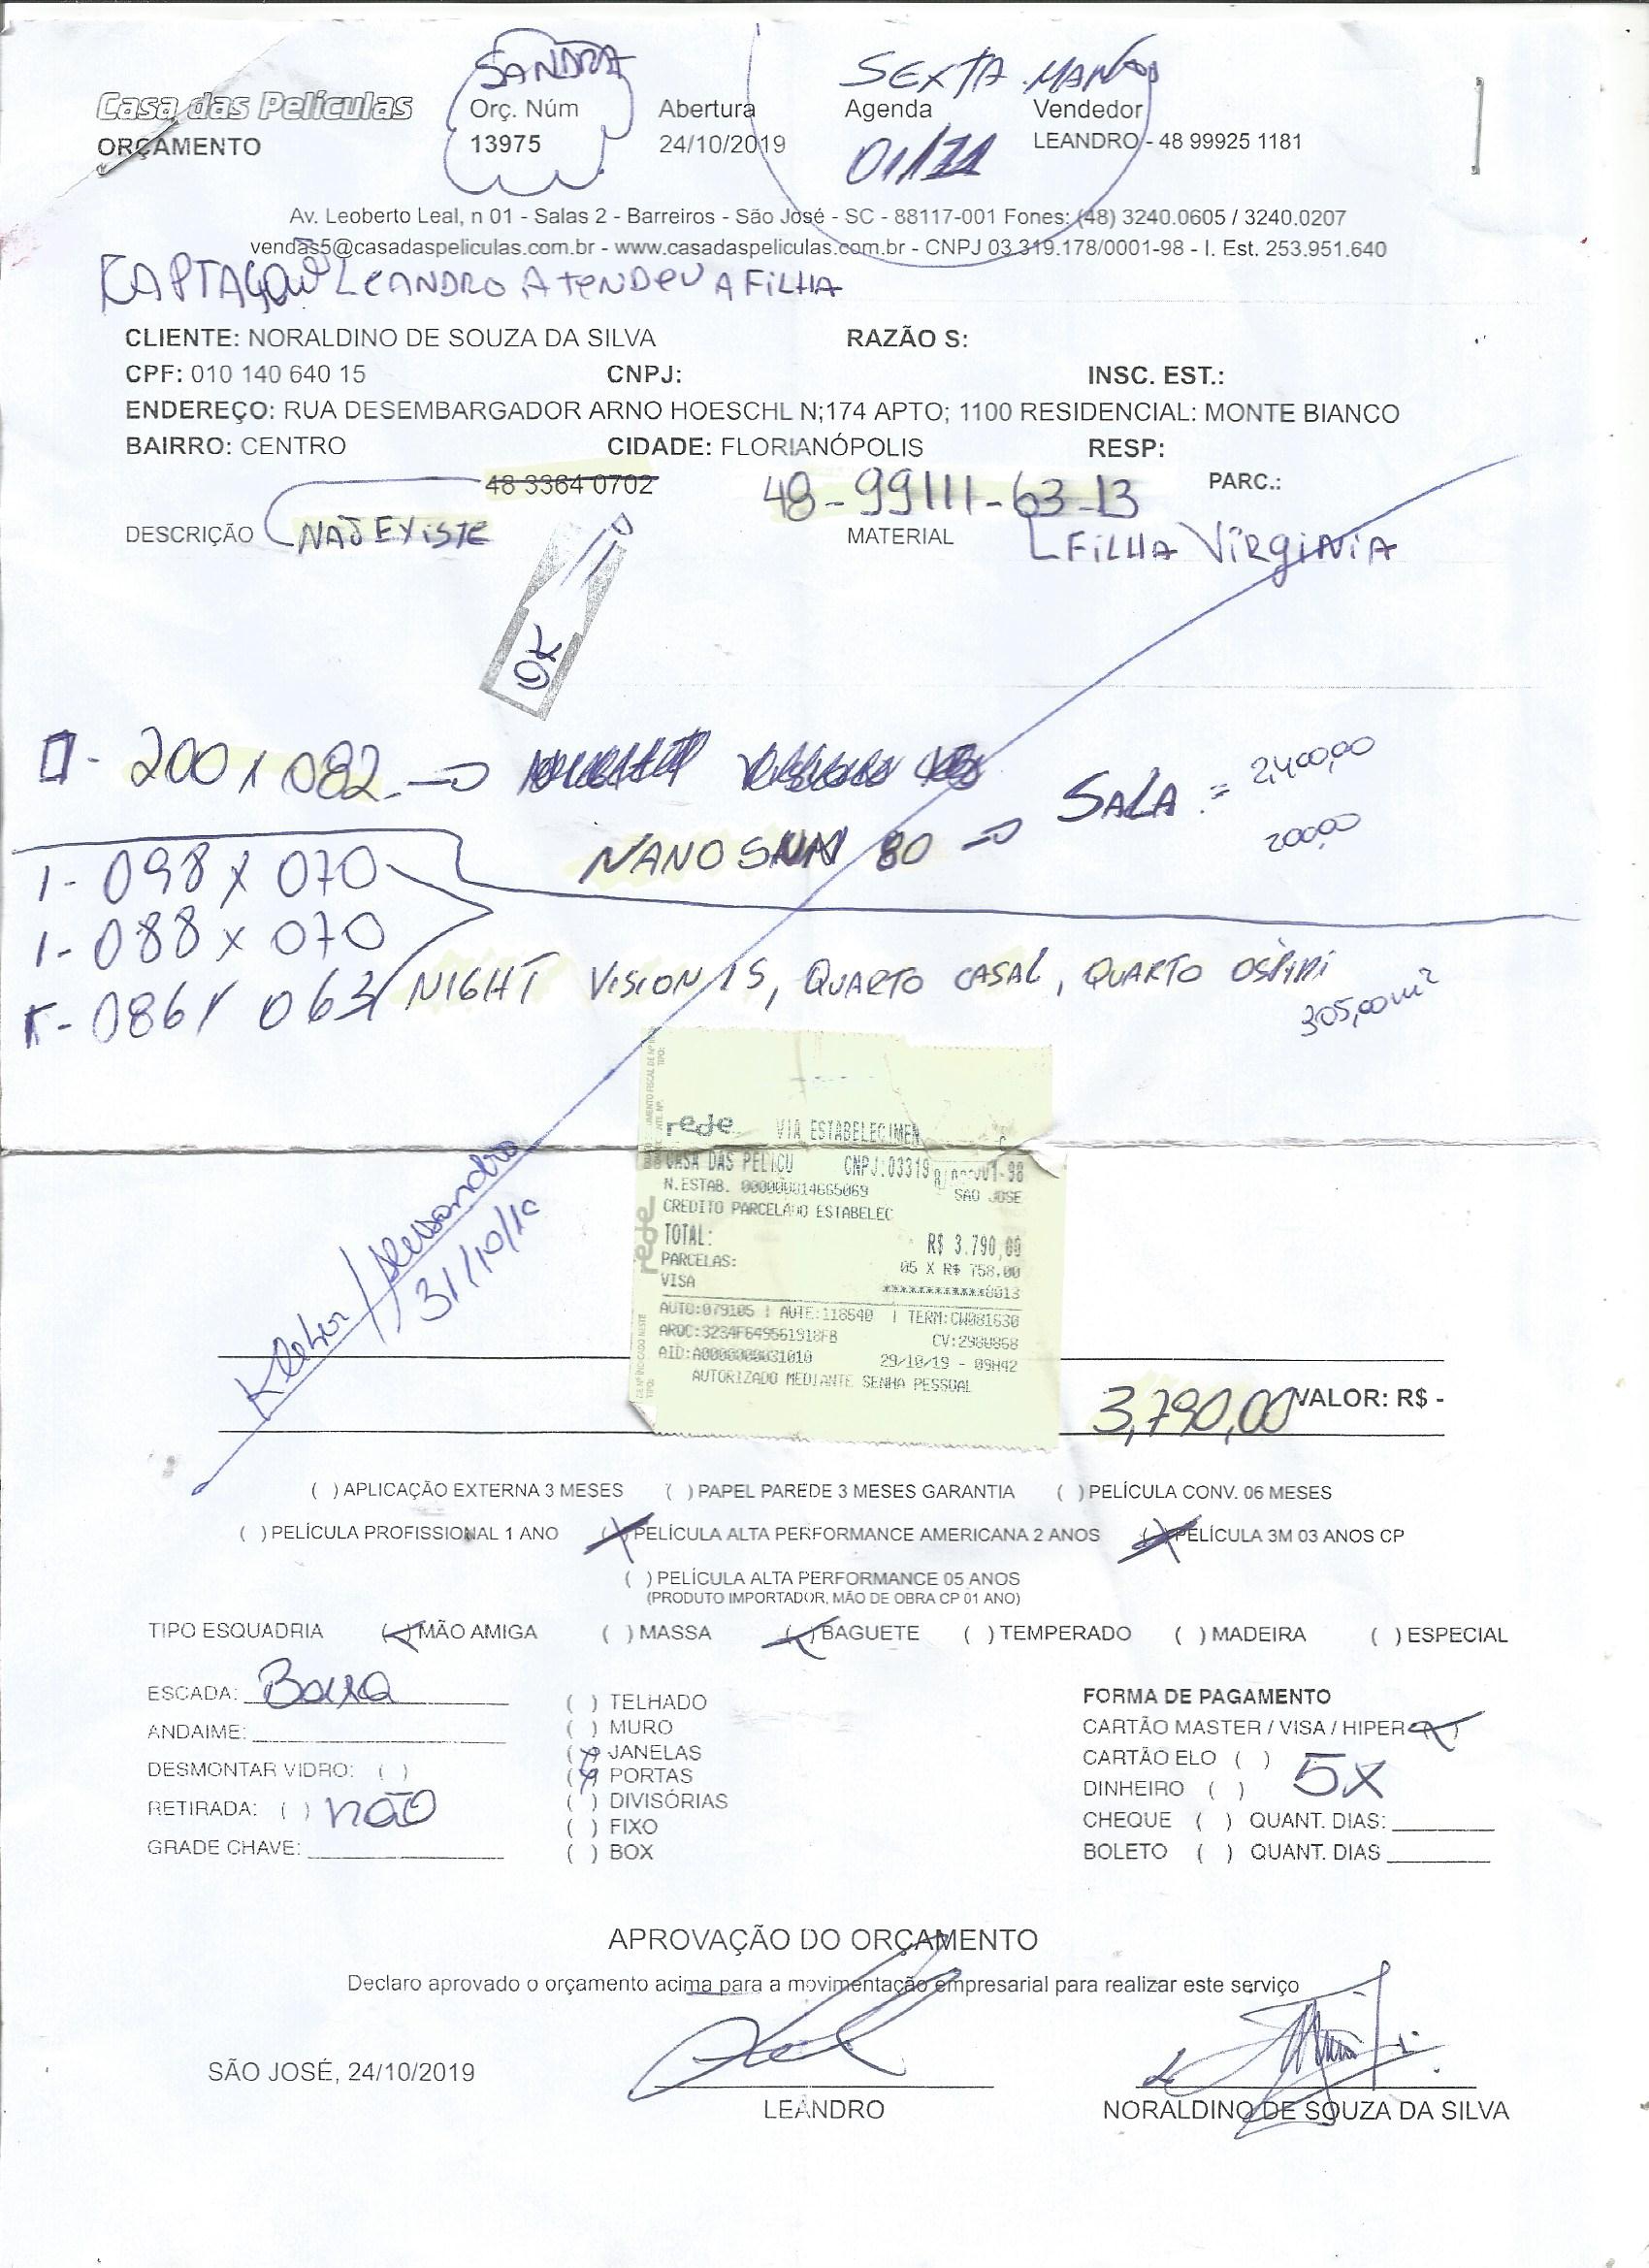 SANDRA
SEXTA MANHÃ
Casa das Películas
Orç. Núm Abertura Agenda Vendedor
ORÇAMENTO 13975 24/10/2019 01/11 LEANDRO - 48 99925 1181
Av. Leoberto Leal, n 01 - Salas 2 - Barreiros - São José - SC - 88117-001 Fones: (48) 3240.0605 / 3240.0207
vendas5@casadaspeliculas.com.br - www.casadaspeliculas.com.br - CNPJ 03.319.178/0001-98 - I. Est. 253.951.640
CAPTAÇÃO LEANDRO ATENDEU A FILHA
CLIENTE: NORALDINO DE SOUZA DA SILVA RAZÃO S:
CPF: 010 140 640 15 CNPJ: INSC. EST.:
ENDEREÇO: RUA DESEMBARGADOR ARNO HOESCHL N;174 APTO; 1100 RESIDENCIAL: MONTE BIANCO
BAIRRO: CENTRO CIDADE: FLORIANÓPOLIS RESP:
48 3364 0702 48-99111-63-13 PARC.:
DESCRIÇÃO NÃO EXISTE MATERIAL FILHA VIRGINIA
OK
- 200 x 082 SALA = 2,400,00
NANO SKIN 80 200,00
1 - 098 x 070
1 - 088 x 070
- 086 x 063 NIGHT VISION 15, QUARTO CASAL, QUARTO
305,00 m²
rede VIA ESTABELECIMEN
CASA DAS PELICU CNPJ:03319
N.ESTAB. 000000014665069 SAO JOSE
CREDITO PARCELADO ESTABELEC
TOTAL: R$ 3.790,00
PARCELAS: 05 X R$ 758,00
VISA ************0013
AUTO:079105 | AUTE:118640 | TERM:CW081630
ARQC:3234F649561918FB CV:2900868
AID:A0000000031010 29/10/19 - 09H42
AUTORIZADO MEDIANTE SENHA PESSOAL
rede
Kleber / Alessandro
31/10/19
3,790,00 VALOR: R$ -
( ) APLICAÇÃO EXTERNA 3 MESES ( ) PAPEL PAREDE 3 MESES GARANTIA ( ) PELÍCULA CONV. 06 MESES
( ) PELÍCULA PROFISSIONAL 1 ANO (X) PELÍCULA ALTA PERFORMANCE AMERICANA 2 ANOS (X) PELÍCULA 3M 03 ANOS CP
( ) PELÍCULA ALTA PERFORMANCE 05 ANOS
(PRODUTO IMPORTADOR, MÃO DE OBRA CP 01 ANO)
TIPO ESQUADRIA (X) MÃO AMIGA ( ) MASSA (X) BAGUETE ( ) TEMPERADO ( ) MADEIRA ( ) ESPECIAL
ESCADA: Baixa
ANDAIME:
DESMONTAR VIDRO: ( )
RETIRADA: ( ) não
GRADE CHAVE:
( ) TELHADO
( ) MURO
(X) JANELAS
(X) PORTAS
( ) DIVISÓRIAS
( ) FIXO
( ) BOX
FORMA DE PAGAMENTO
CARTÃO MASTER / VISA / HIPER (X)
CARTÃO ELO ( )
DINHEIRO ( ) 5X
CHEQUE ( ) QUANT. DIAS:
BOLETO ( ) QUANT. DIAS
APROVAÇÃO DO ORÇAMENTO
Declaro aprovado o orçamento acima para a movimentação empresarial para realizar este serviço
SÃO JOSÉ, 24/10/2019
LEANDRO NORALDINO DE SOUZA DA SILVA